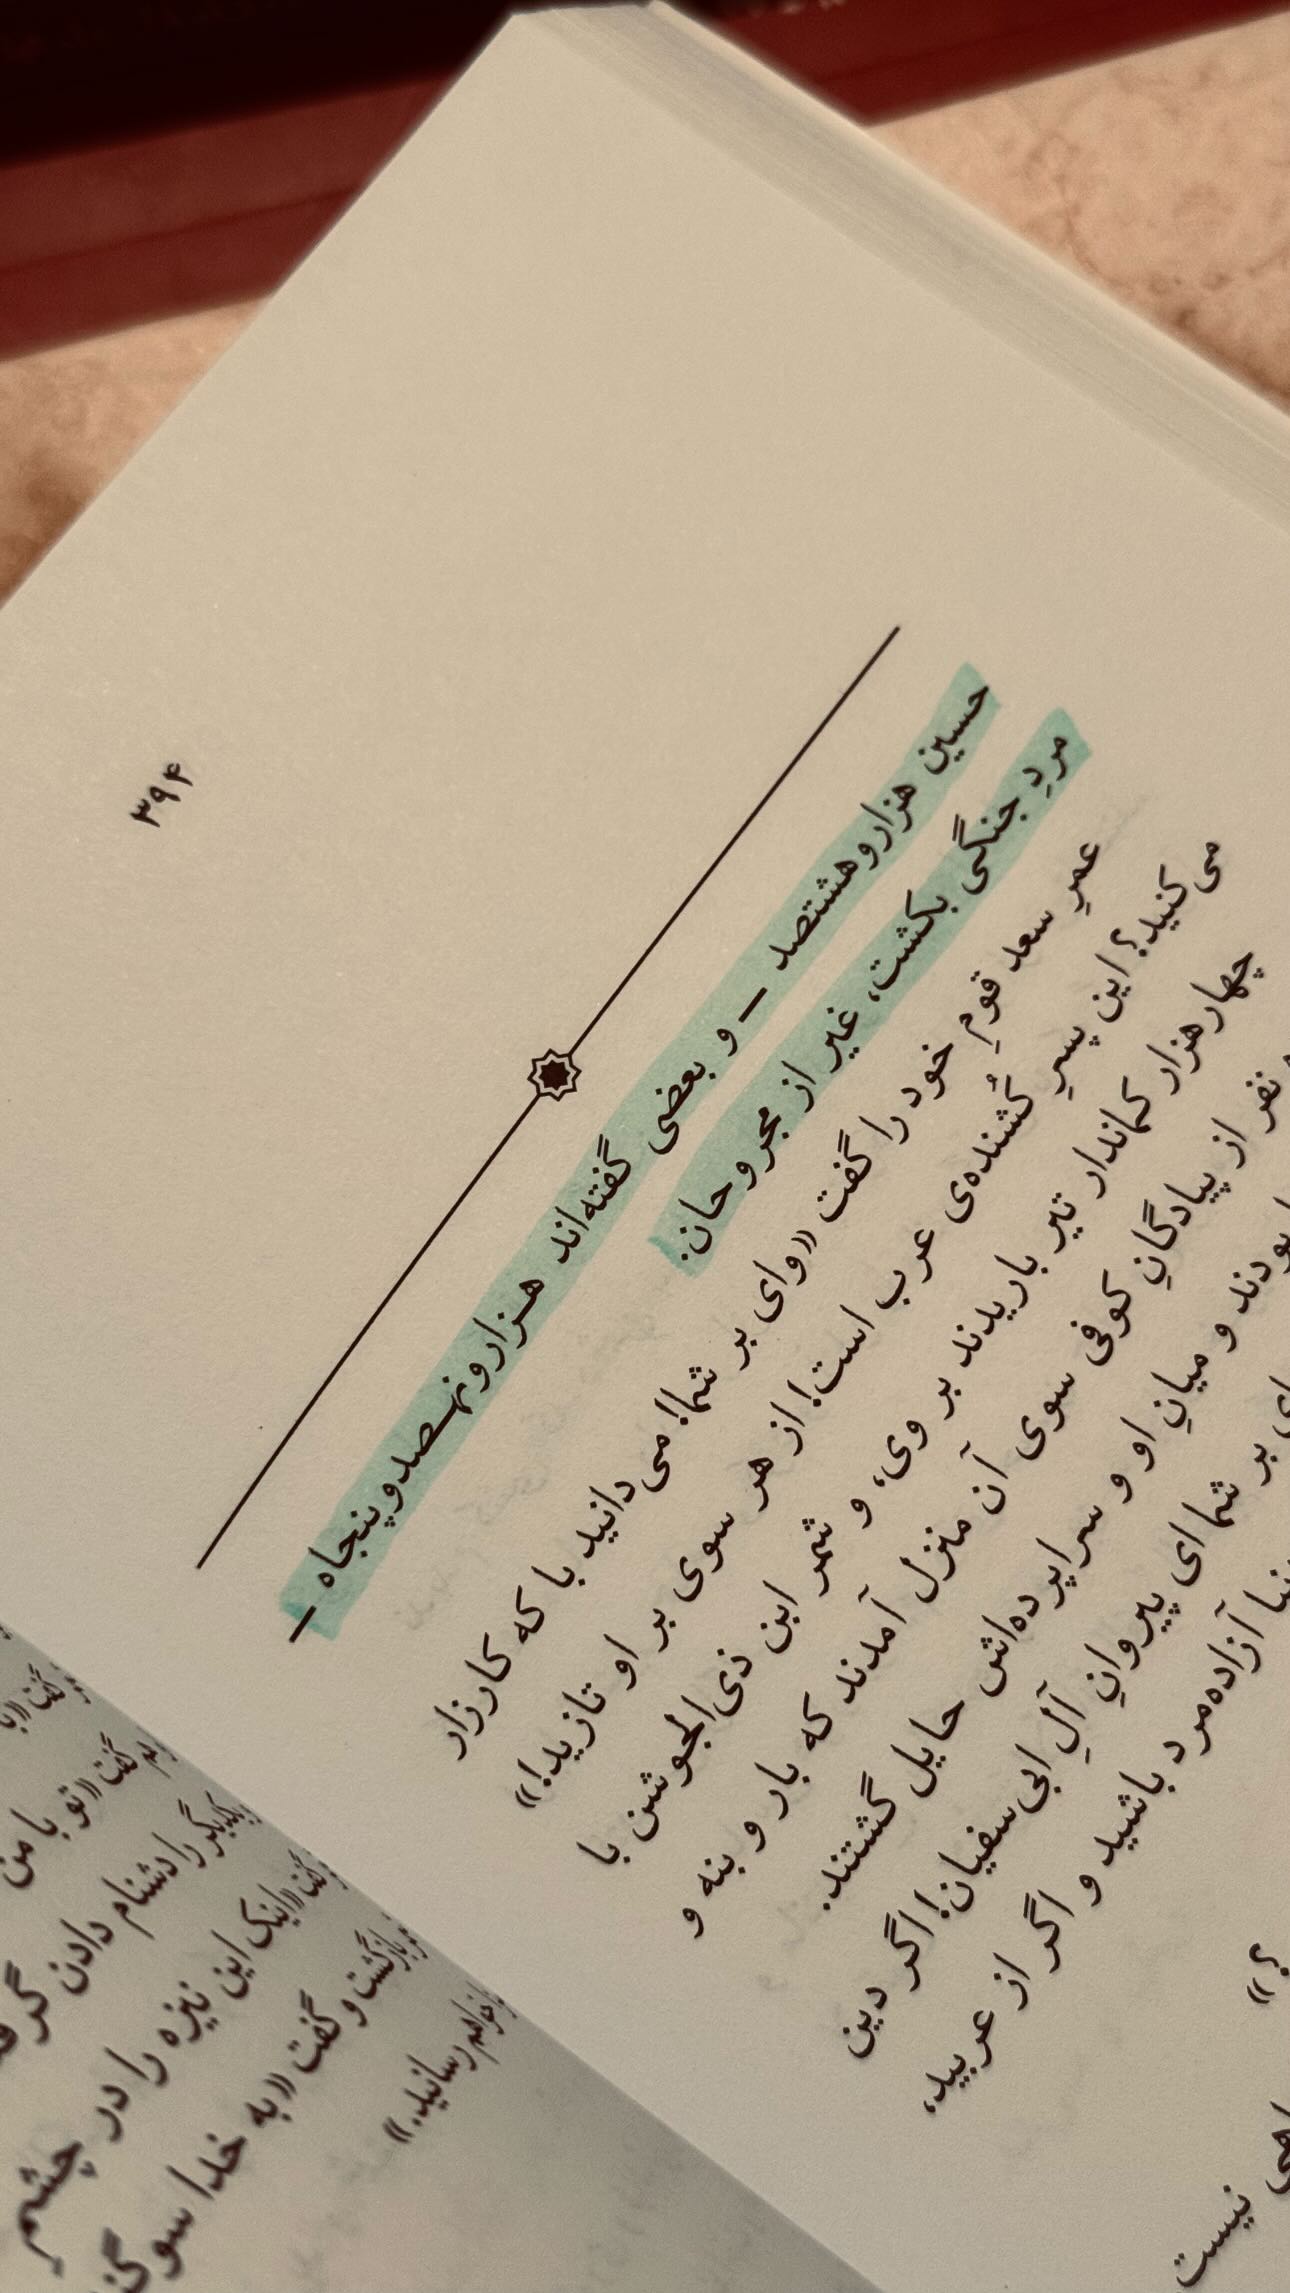 ۳۹۴
حسین هزار و هشتصد – و بعضی گفته‌اند هزار و نهصد و پنجاه –
مردِ جنگی بکشت، غیر از مجروحان.
عمرِ سعد قومِ خود را گفت «وای بر شما! می‌دانید با که کارزار
می‌کنید؟ این پسرِ کُشنده‌ی عرب است! از هر سوی بر او تازید!»
چهار هزار کماندار تیر باریدند بر وی، و شمر ابن ذی‌الجوشن با
نفر از پیادگانِ کوفی سوی آن منزل آمدند که بار و بنه و
بودند و میانِ او و سراپرده‌اش حایل گشتند.
بر شما ای پیروانِ آلِ ابی‌سفیان! اگر دین
آزاده‌مرد باشید و اگر از عربید،
؟»
نیست
گفت «با
گفت «تو با من
یکدیگر را دشنام دادن
گفت «اینک این نیزه را در چشم
بازگشت و گفت «به خدا سوگند
خواهم رسانید.»